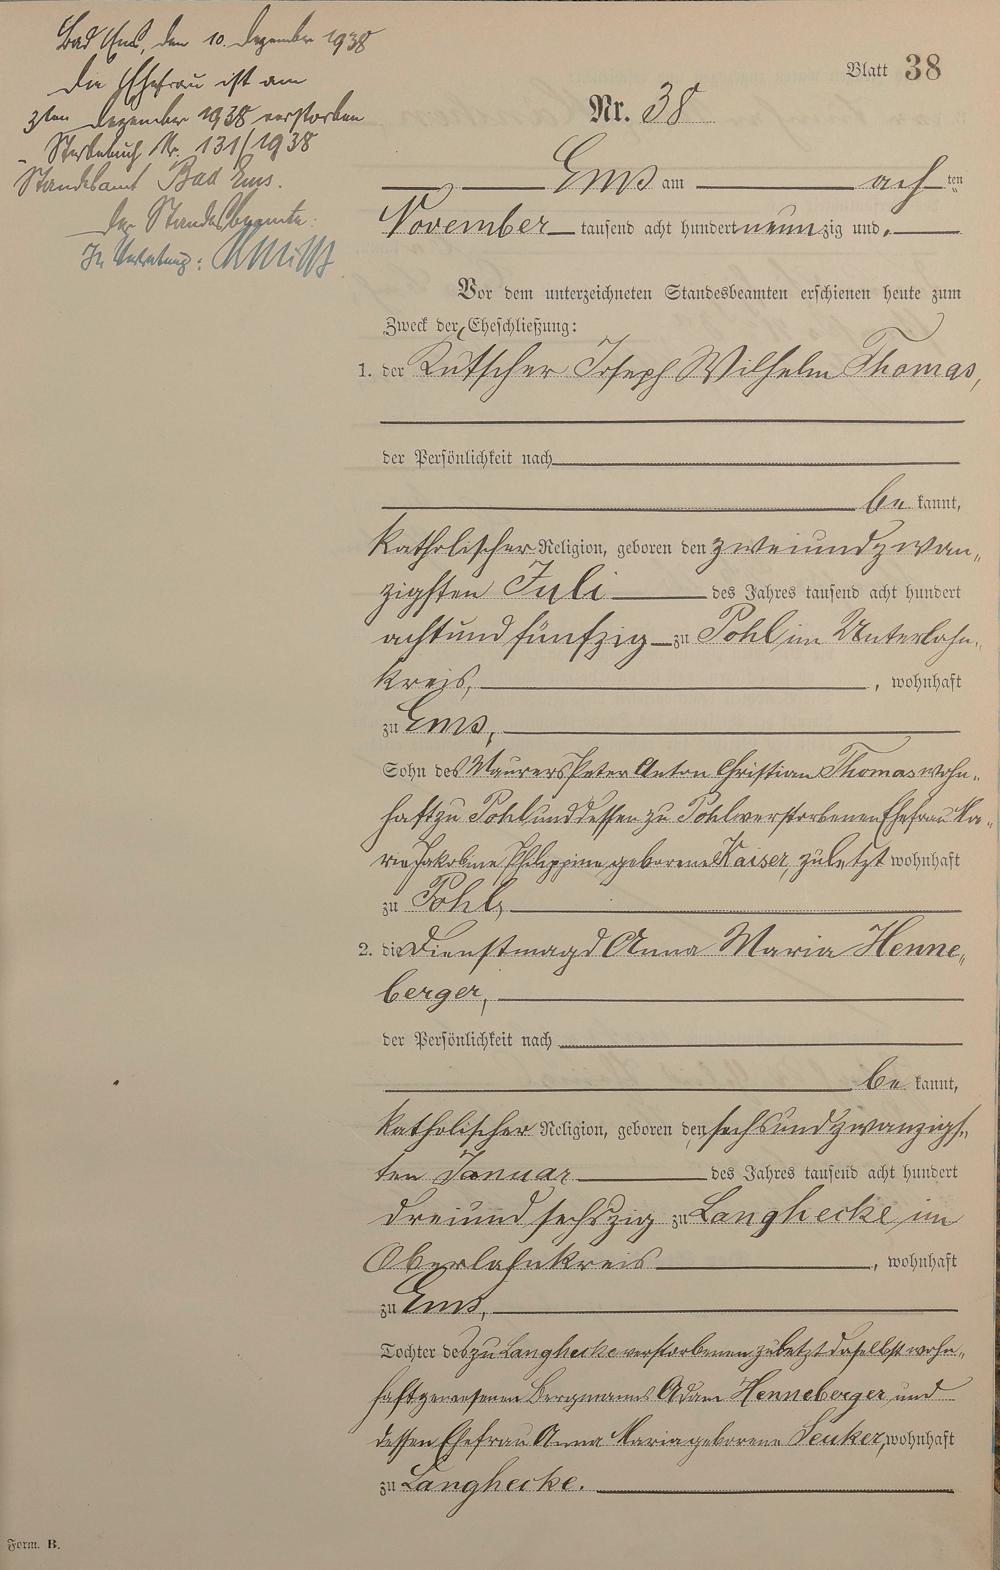 Bad Ems, den 10. Dezember 1938
Die Ehefrau ist am
3ten Dezember 1938 verstorben
- Sterbebuch Nr. 131/1938
Standesamt Bad Ems.
Der Standesbeamte:
In Vertretung:
Blatt 38
Nr. 38
Ems am ach ten
November tausend acht hundert neunzig und.
Vor dem unterzeichneten Standesbeamten erschienen heute zum
Zweck der Eheschließung:
1. der Kutscher Joseph Wilhelm Thomas,
der Persönlichkeit nach
be kannt,
katholischer Religion, geboren den zweiundzwan„
zigsten Juli des Jahres tausend acht hundert
achtundfünfzig zu Pohl im Unterlahn„
kreis, , wohnhaft
zu Ems,
Sohn des Maurers Peter Anton Christian Thomas wohn„
haft zu Pohl und dessen zu Pohl verstorbenen Ehefrau Ma„
rie Jakobine Philippine geborene Kaiser, zuletzt wohnhaft
zu Pohl,
2. die Dienstmagd Anna Maria Henne„
berger,
der Persönlichkeit nach
be kannt,
katholischer Religion, geboren den sechsundzwanzigs„
ten Januar des Jahres tausend acht hundert
dreiundsechszig zu Langhecke im
Oberlahnkreis , wohnhaft
zu Ems,
Tochter des zu Langhecke verstorbenen zuletzt daselbst wohn„
haft gewesenen Bergmanns Adam Henneberger und
dessen Ehefrau Anna Maria geborene Seuker, wohnhaft
zu Langhecke.
Form. B.